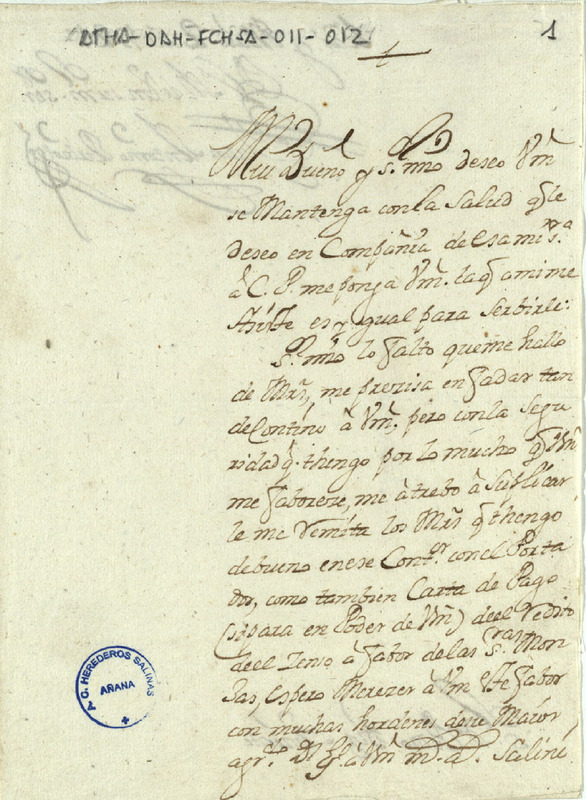 ATHA-DAH-FCHSA-011-012
1
Mui Dueño y s.r mio deseo Vm
se Mantenga con la Salud q̃ le
deseo en Compañia de Esa mi s.ra
à C. P. me ponga Vm. la q̃ ami me
Asiste es ygual para Serbirle:
s.r mio lo falto que me hallo
de Mrs̃, me preziza enfadar tan
de Contino à Vm̃, pero con la Segu
ridad q̃. thengo por lo mucho q̃ Vm̃
me faboreze, me àtrebo à Suplicar
le me Remita los Mrs̃ q̃ thengo
debueno en ese Cont.o con el Porta
dor, como tambien Carta de Pago
(si para en Poder de Vm̃) deel Redito
deel Zenso à fabor de las s.ras Mon
Jas, Espero Merezer à Vm este fabor
con muchas hordenes de su Maior
agr.do D.s g̃.e à Vm̃ m. a.s Salini
A.C. HEREDEROS SALINAS
AÑANA